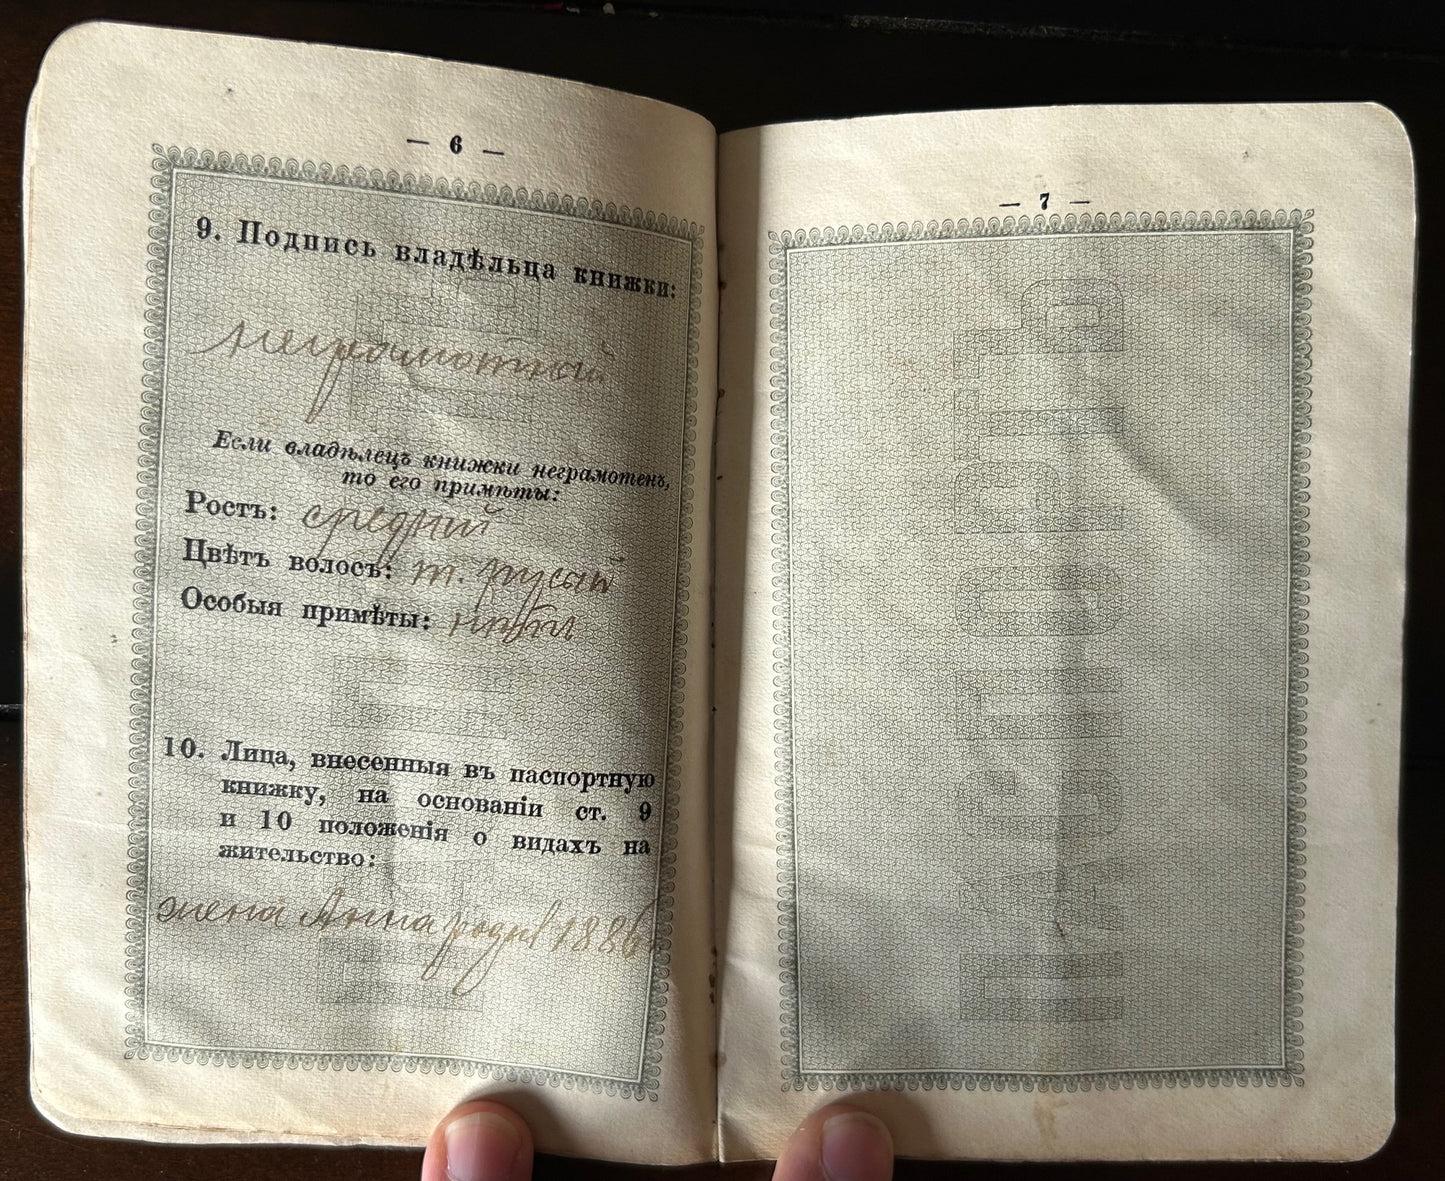 — 6 —
9. Подпись владѣльца книжки:
неграмотный
Если владѣлецъ книжки неграмотенъ,
то его примѣты:
Ростъ: средний
Цвѣтъ волосъ: т. русый
Особыя примѣты: нѣтъ
10. Лица, внесенныя въ паспортную
книжку, на основаніи ст. 9
и 10 положенія о видахъ на
жительство:
жена Анна 1886
— 7 —
ПАСПОРТЪ